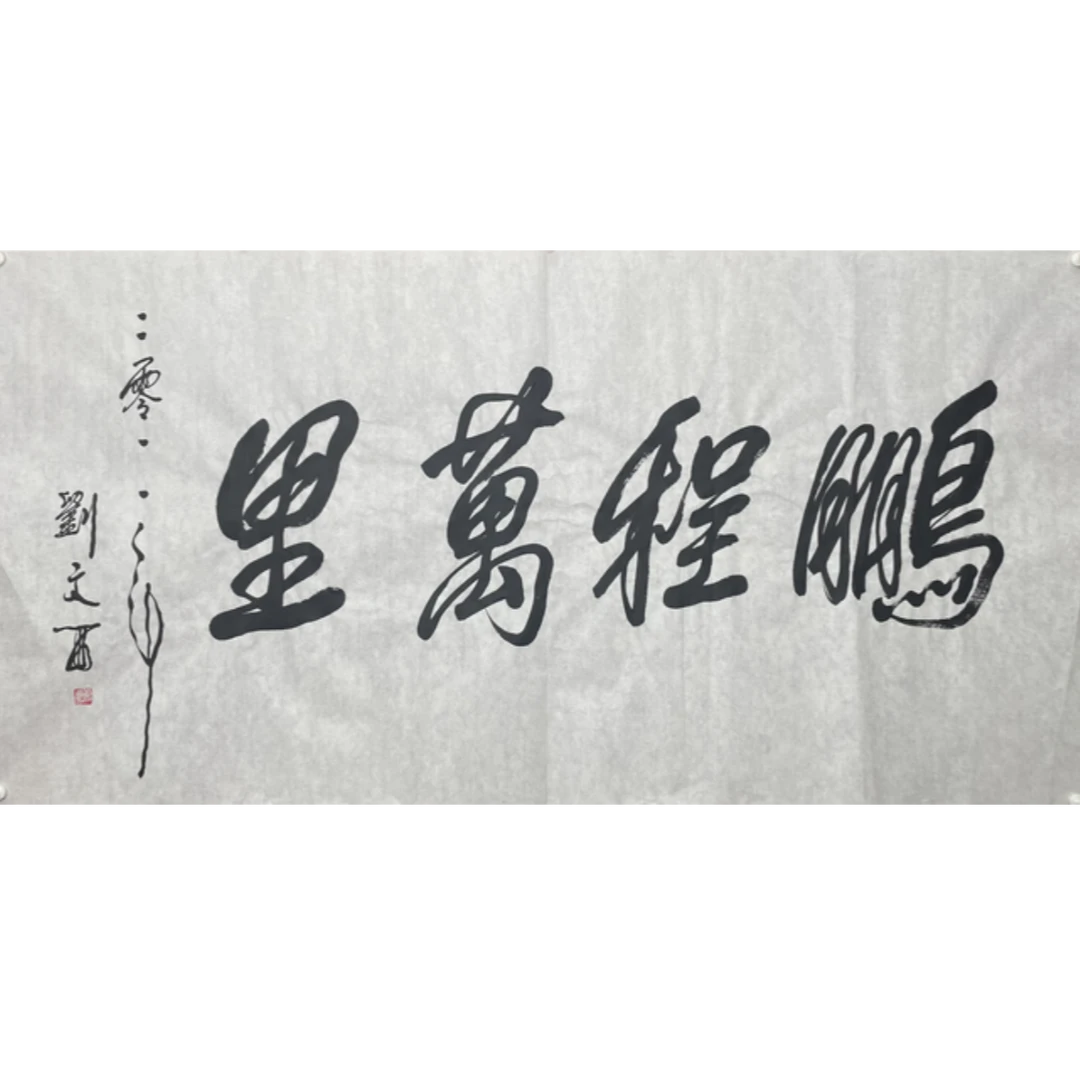 鵬程萬里
二零一一年
劉文西